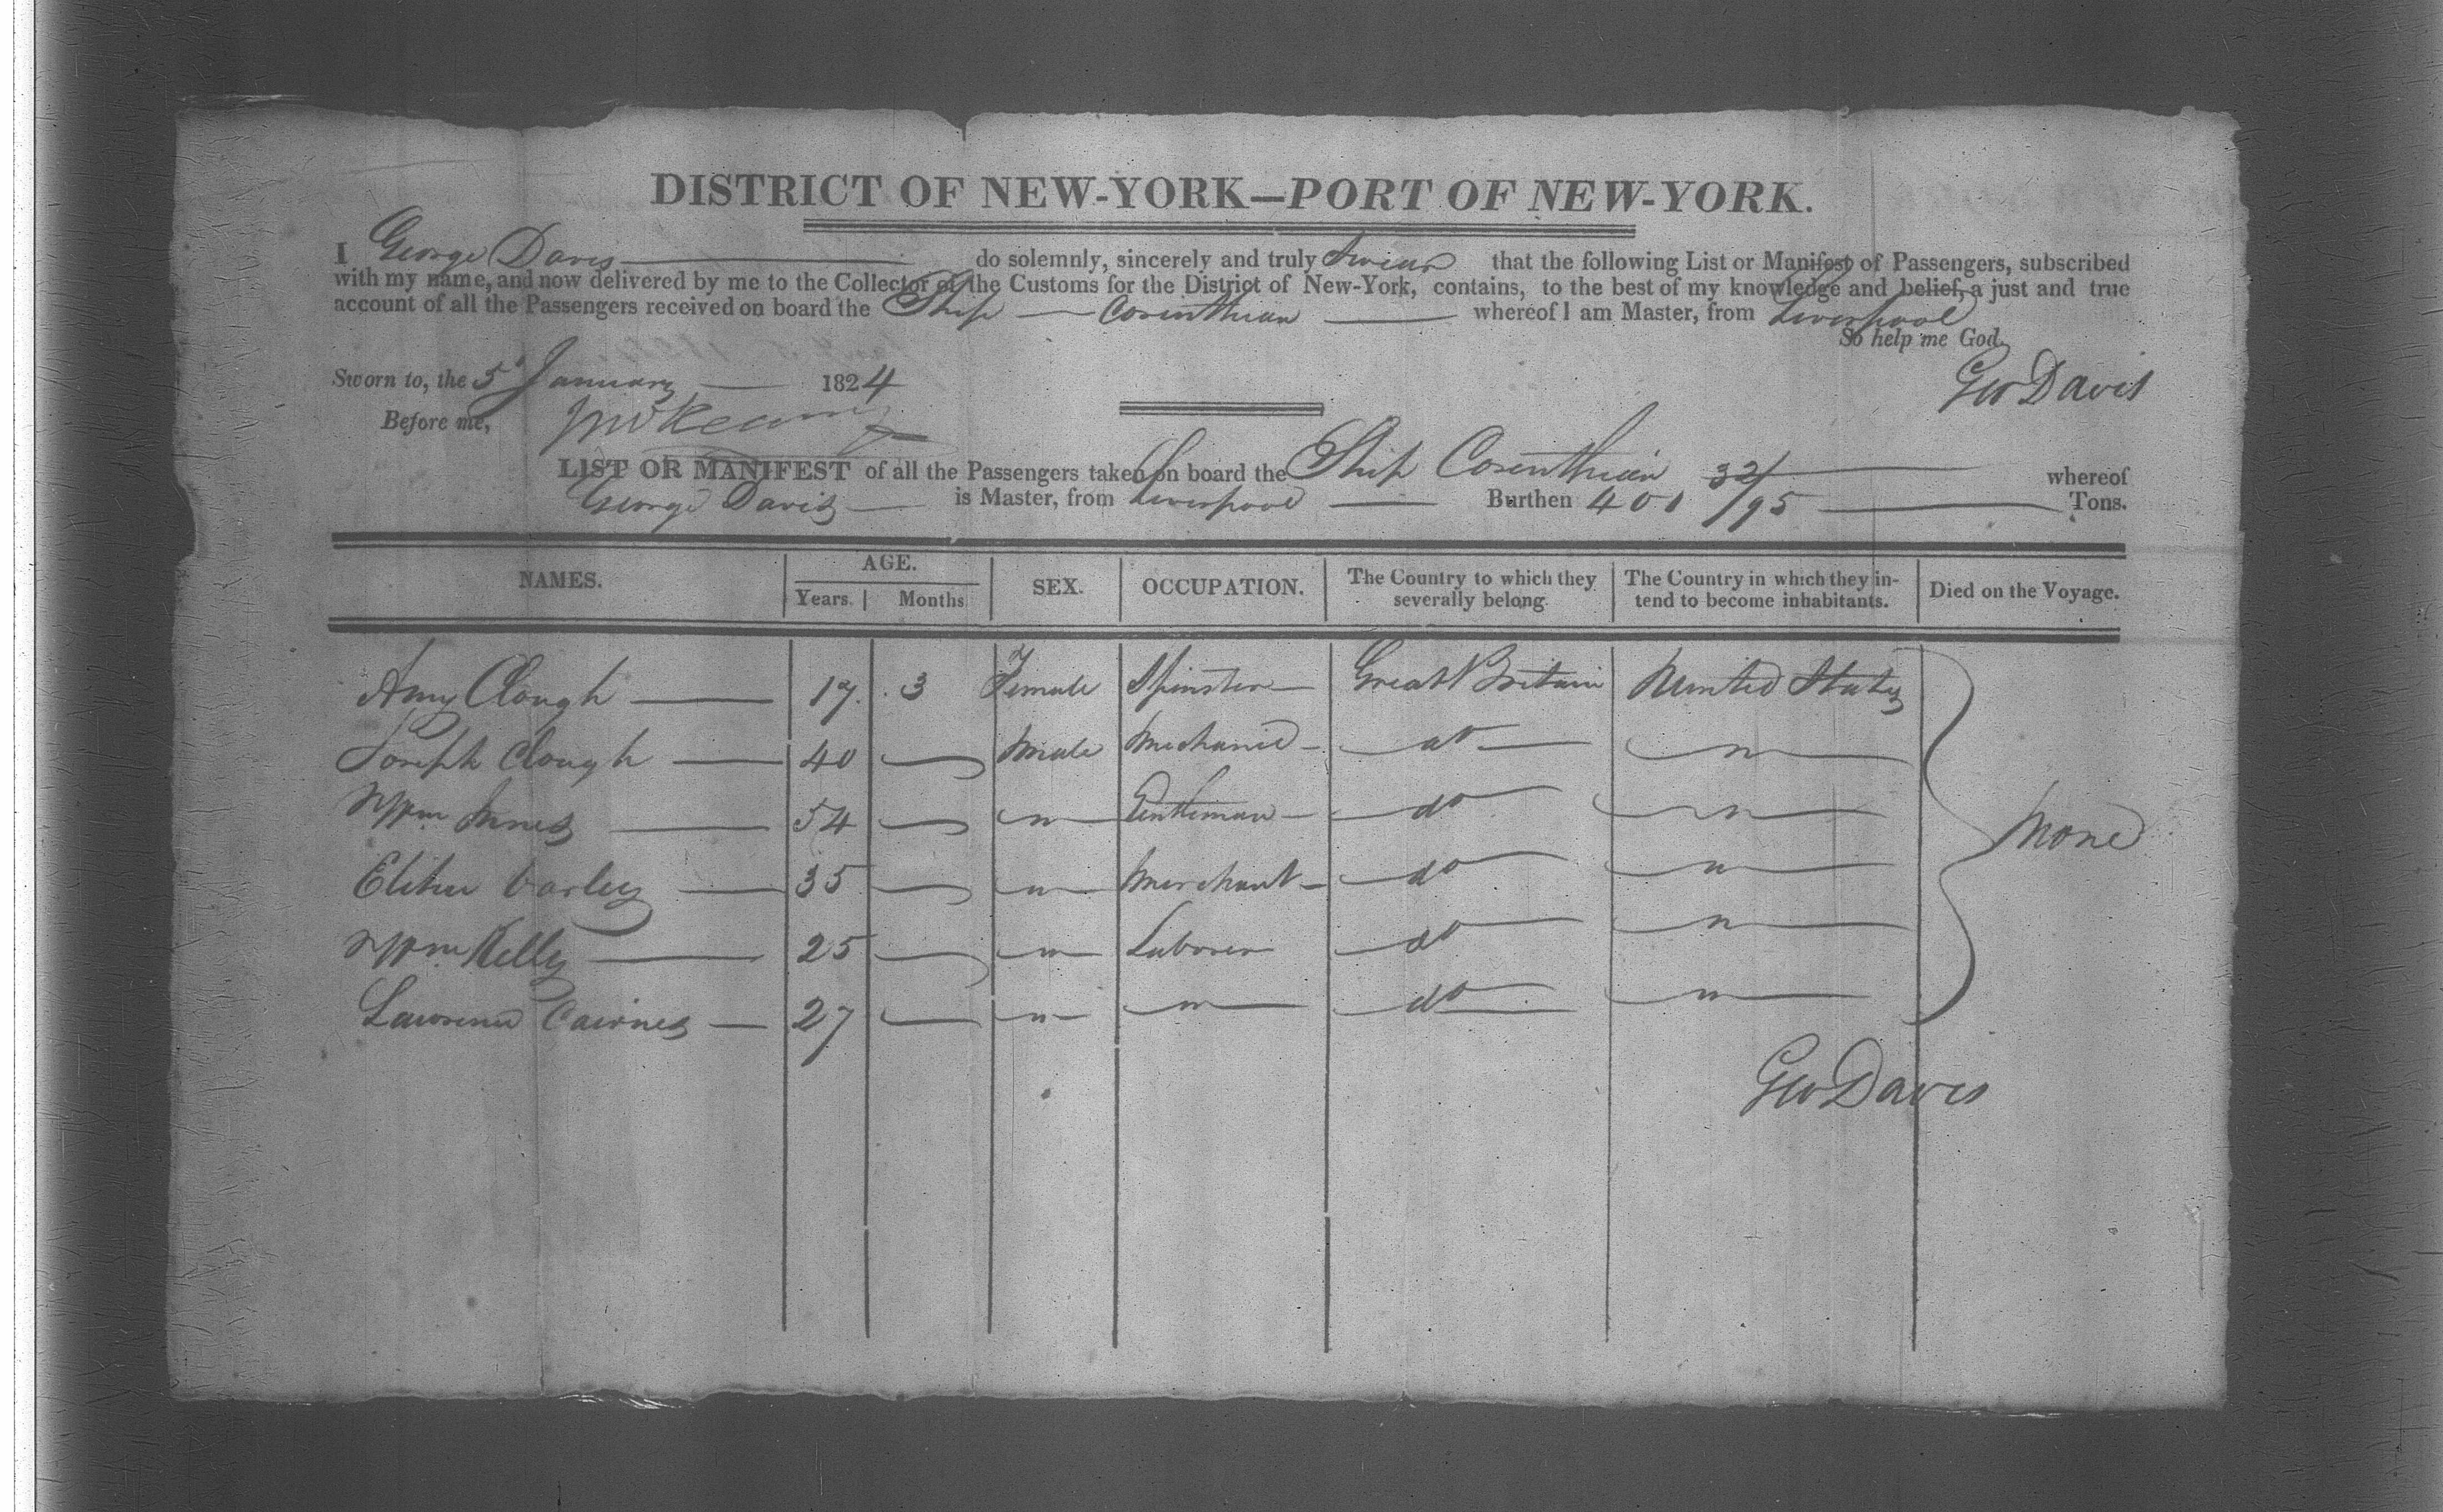 DISTRICT OF NEW-YORK—PORT OF NEW-YORK.
I George Davis do solemnly, sincerely and truly Swear that the following List or Manifest of Passengers, subscribed
with my name, and now delivered by me to the Collector of the Customs for the District of New-York, contains, to the best of my knowledge and belief, a just and true
account of all the Passengers received on board the Ship — Corinthian — whereof I am Master, from Liverpool
So help me God.
Geo Davis
Sworn to, the 5 January — 1824
Before me,
LIST OR MANIFEST of all the Passengers taken on board the Ship Corinthian whereof
George Davis — is Master, from Liverpool — Burthen 401 32/95 Tons.
NAMES. AGE. SEX. OCCUPATION. The Country to which they severally belong. The Country in which they in-tend to become inhabitants. Died on the Voyage.
Years. Months
Amy Clough — 17 . 3 Female Spinster — Great Britain United States
Joseph Clough — 40 — Male Mechanic — do — "
Wm Innes — 54 — " Gentleman — do — "
Elihu Varley — 35 — " Merchant — do — " None
Wm Kelly — 25 — " Laborer do — "
Lawrence Cairnes — 27 — " " do — "
Geo Davis